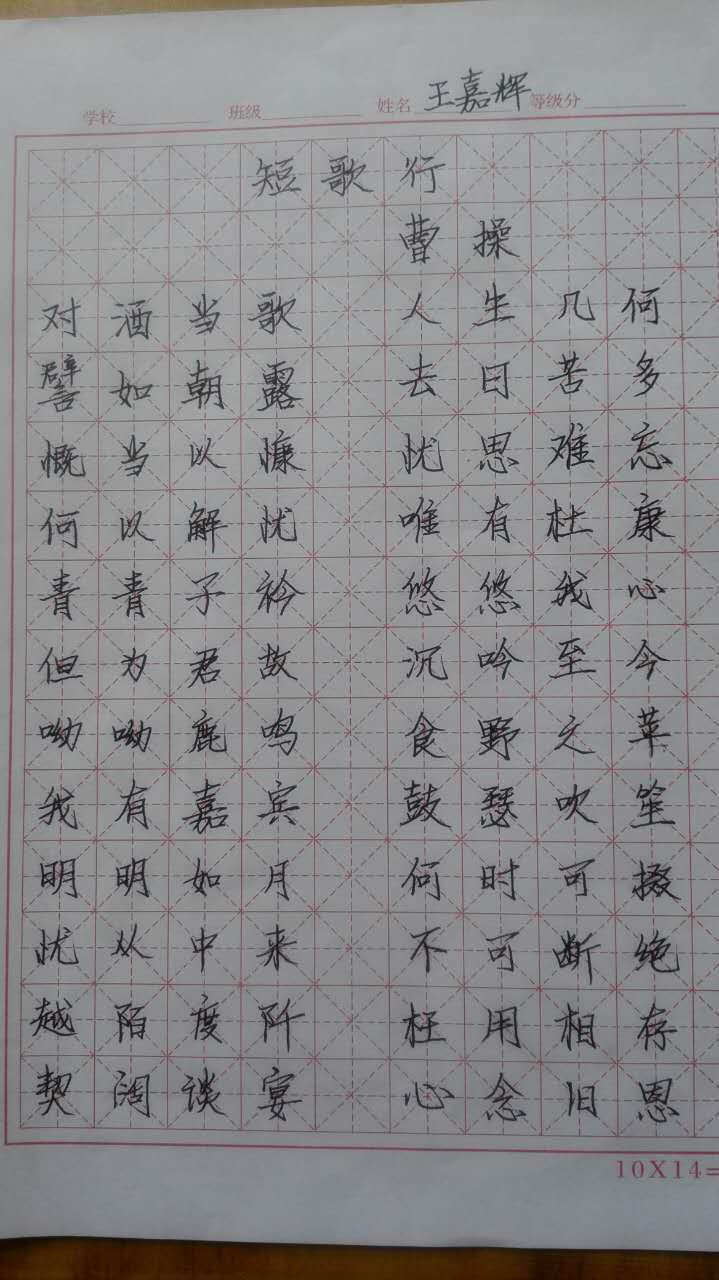 学校 班级 姓名 王嘉辉 等级分
短歌行
曹操
对酒当歌 人生几何
譬如朝露 去日苦多
慨当以慷 忧思难忘
何以解忧 唯有杜康
青青子衿 悠悠我心
但为君故 沉吟至今
呦呦鹿鸣 食野之苹
我有嘉宾 鼓瑟吹笙
明明如月 何时可掇
忧从中来 不可断绝
越陌度阡 枉用相存
契阔谈宴 心念旧恩
10X14=